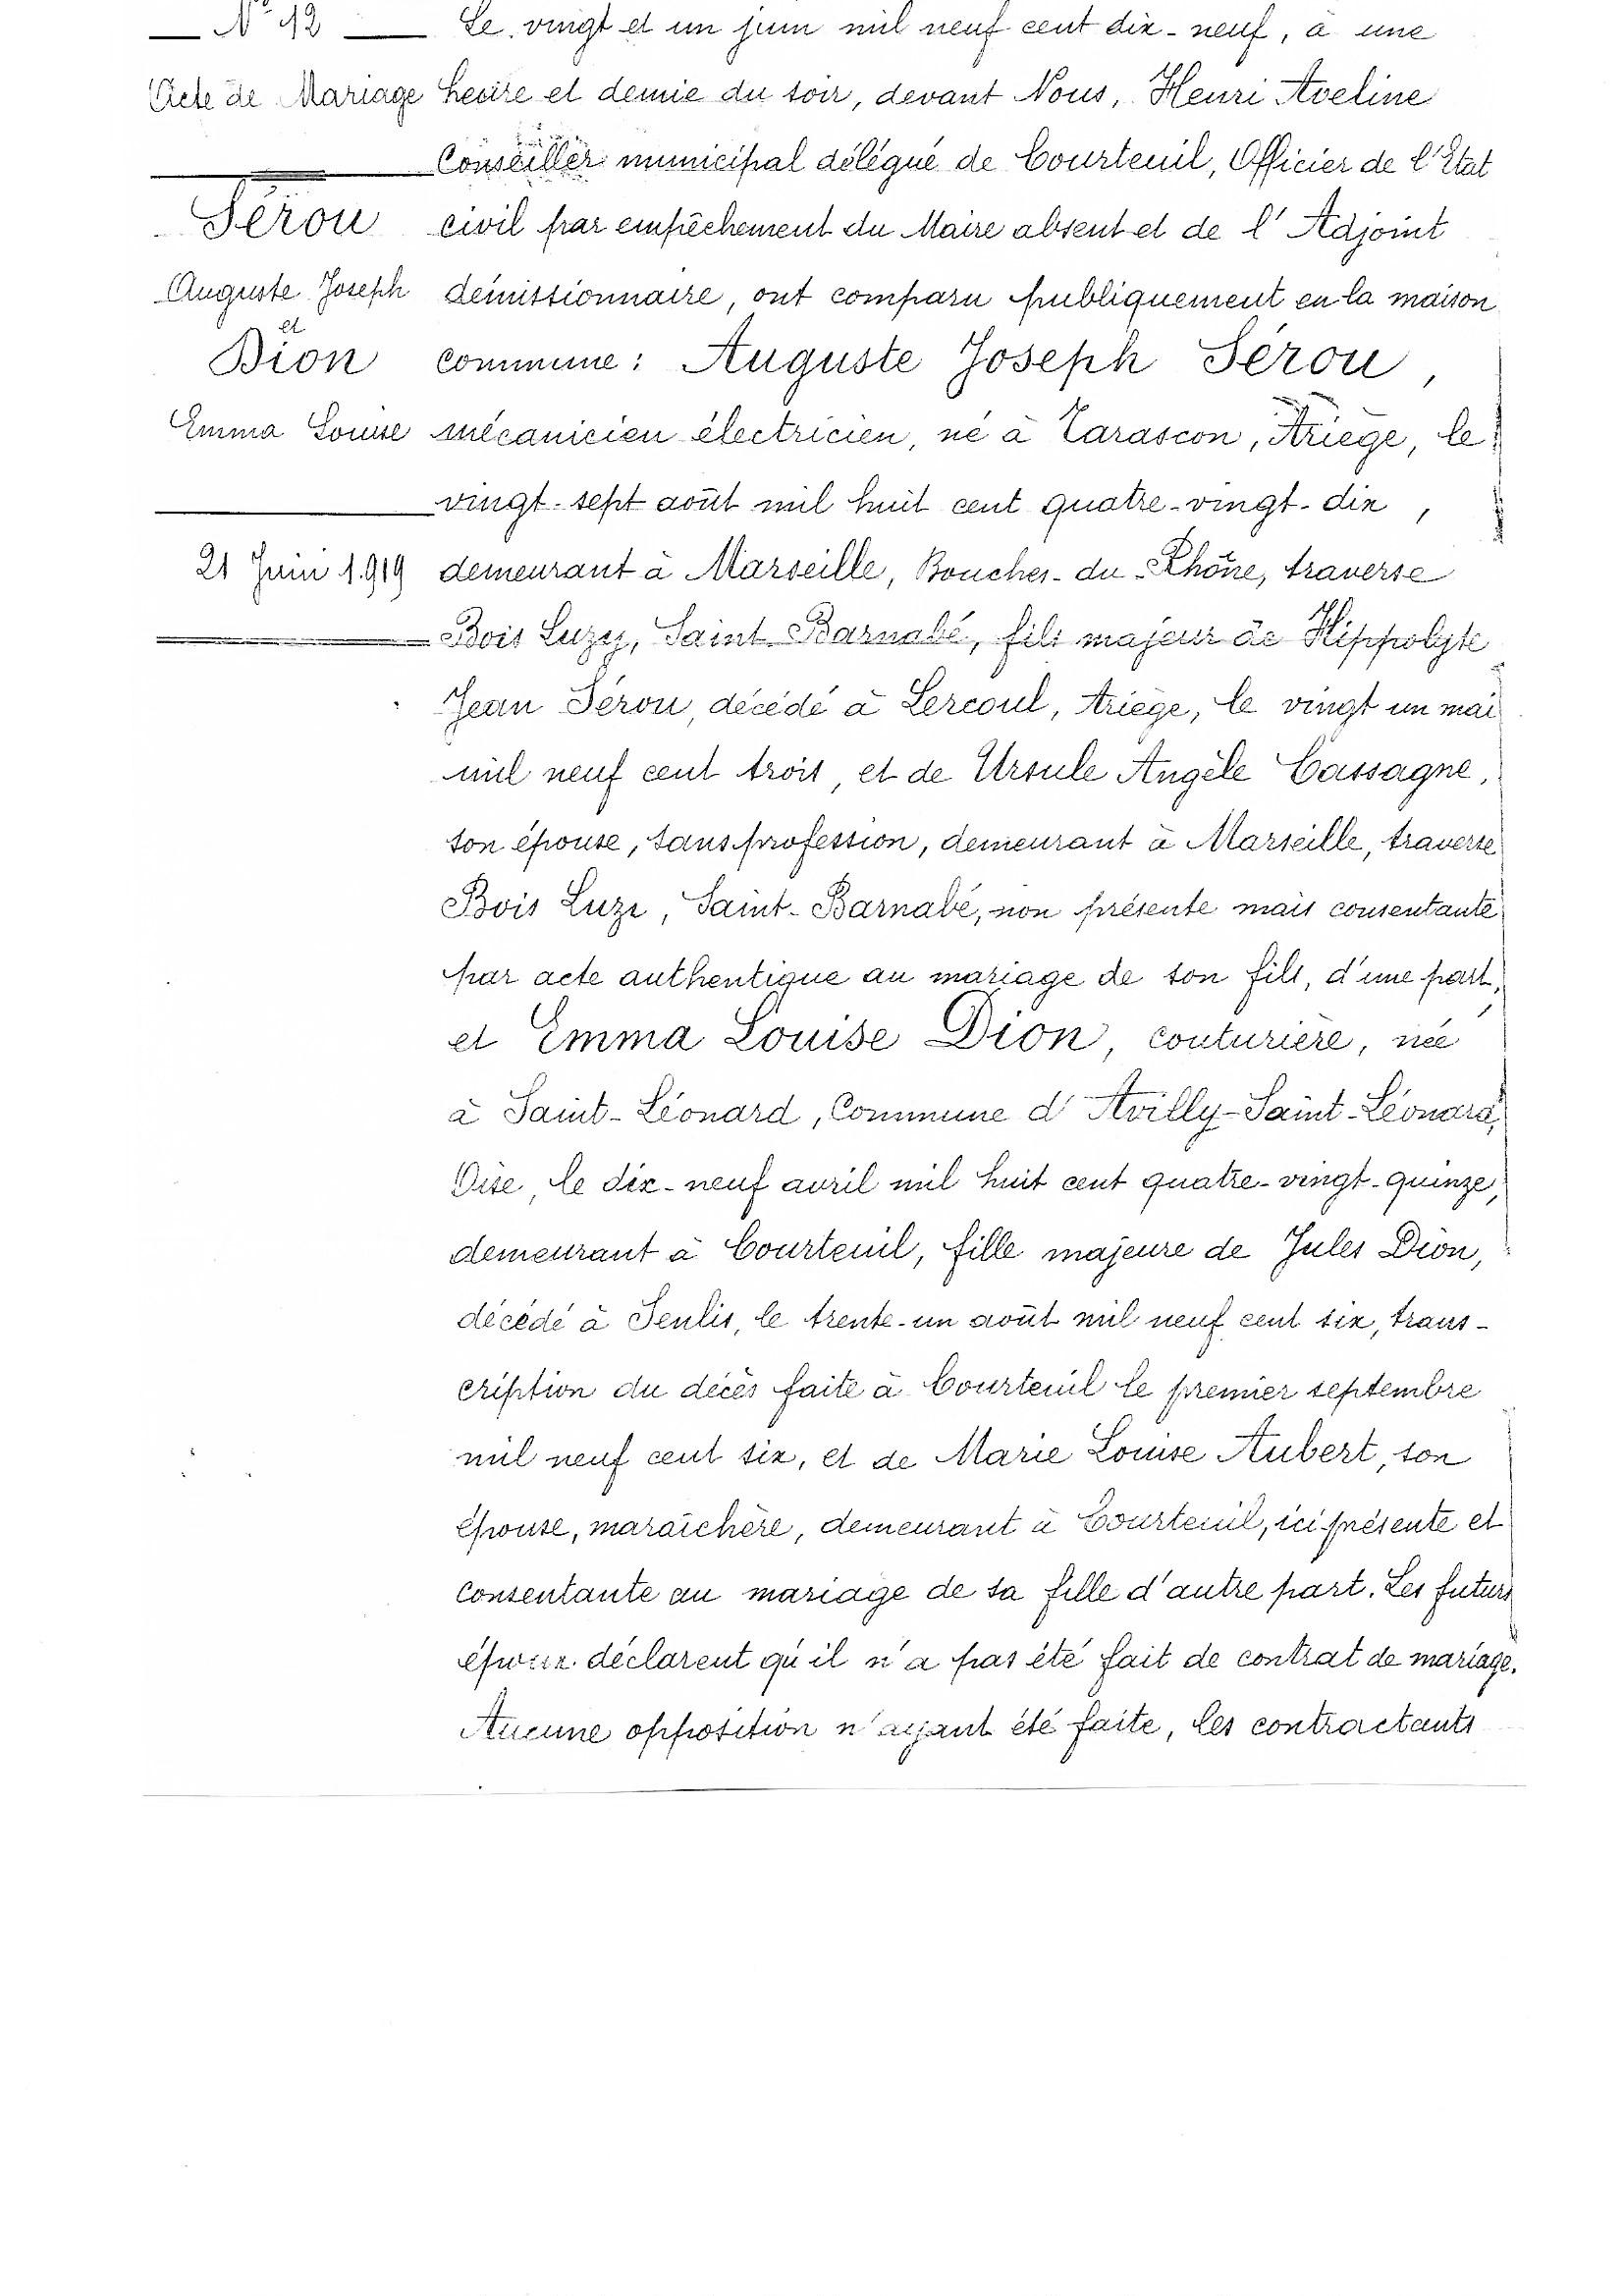 N° 12
Acte de Mariage
Sérou
Auguste Joseph
et
Dion
Emma Louise
21 Juin 1919
Le vingt et un juin mil neuf cent dix-neuf, à une
heure et demie du soir, devant Nous, Henri Aveline
Conseiller municipal délégué de Courteuil, Officier de l'Etat
civil par empêchement du Maire absent et de l'Adjoint
démissionnaire, ont comparu publiquement en la maison
commune : Auguste Joseph Sérou,
mécanicien électricien, né à Tarascon, Ariège, le
vingt-sept août mil huit cent quatre-vingt-dix,
demeurant à Marseille, Bouches-du-Rhône, traverse
Bois Luzy, Saint Barnabé, fils majeur de Hippolyte
Jean Sérou, décédé à Lercoul, Ariège, le vingt un mai
mil neuf cent trois, et de Ursule Angèle Cassagne,
son épouse, sans profession, demeurant à Marseille, traverse
Bois Luzi, Saint-Barnabé, non présente mais consentante
par acte authentique au mariage de son fils, d'une part,
et Emma Louise Dion, couturière, née
à Saint-Léonard, Commune d'Avilly-Saint-Léonard,
Oise, le dix-neuf avril mil huit cent quatre-vingt-quinze,
demeurant à Courteuil, fille majeure de Jules Dion,
décédé à Senlis, le trente-un août mil neuf cent six, trans-
cription du décès faite à Courteuil le premier septembre
mil neuf cent six, et de Marie Louise Aubert, son
épouse, maraîchère, demeurant à Courteuil, ici présente et
consentante au mariage de sa fille d'autre part. Les futurs
époux déclarent qu'il n'a pas été fait de contrat de mariage.
Aucune opposition n'ayant été faite, les contractants